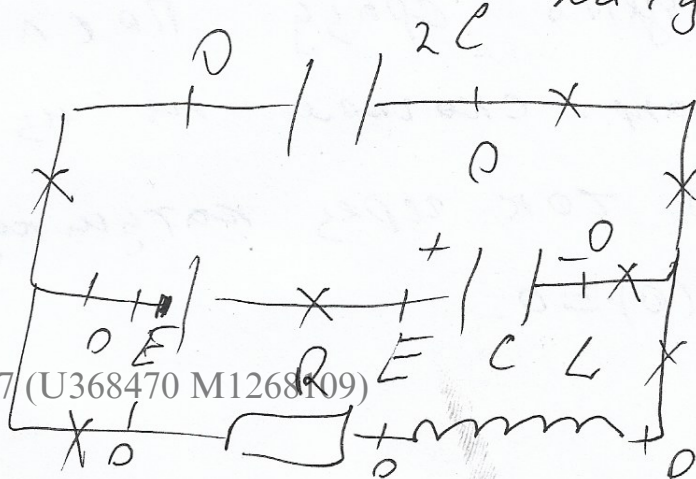 0 2C
0
+ -0
0 E R E C L
7 (U368470 M1268109)
0 0 0